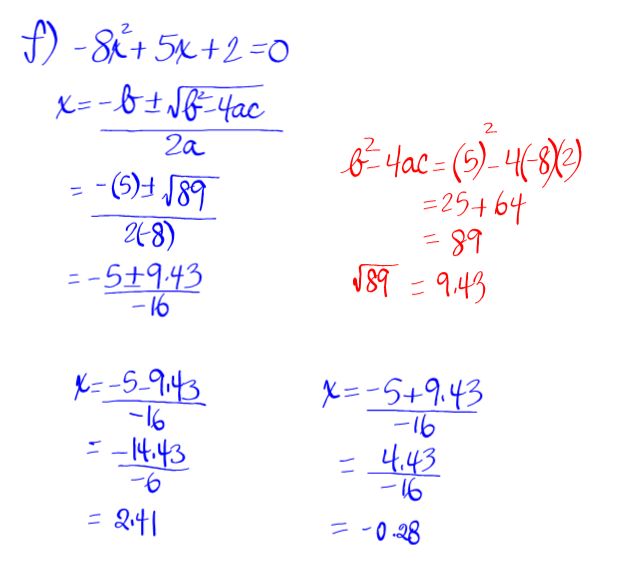 f) -8x²+5x+2=0
x = (-b ± √(b²-4ac))/(2a)
= (-(5) ± √89)/(2(-8))
= (-5 ± 9.43)/(-16)
b²-4ac = (5)²-4(-8)(2)
= 25+64
= 89
√89 = 9.43
x = (-5-9.43)/(-16)
= (-14.43)/(-6)
= 2.41
x = (-5+9.43)/(-16)
= (4.43)/(-16)
= -0.28